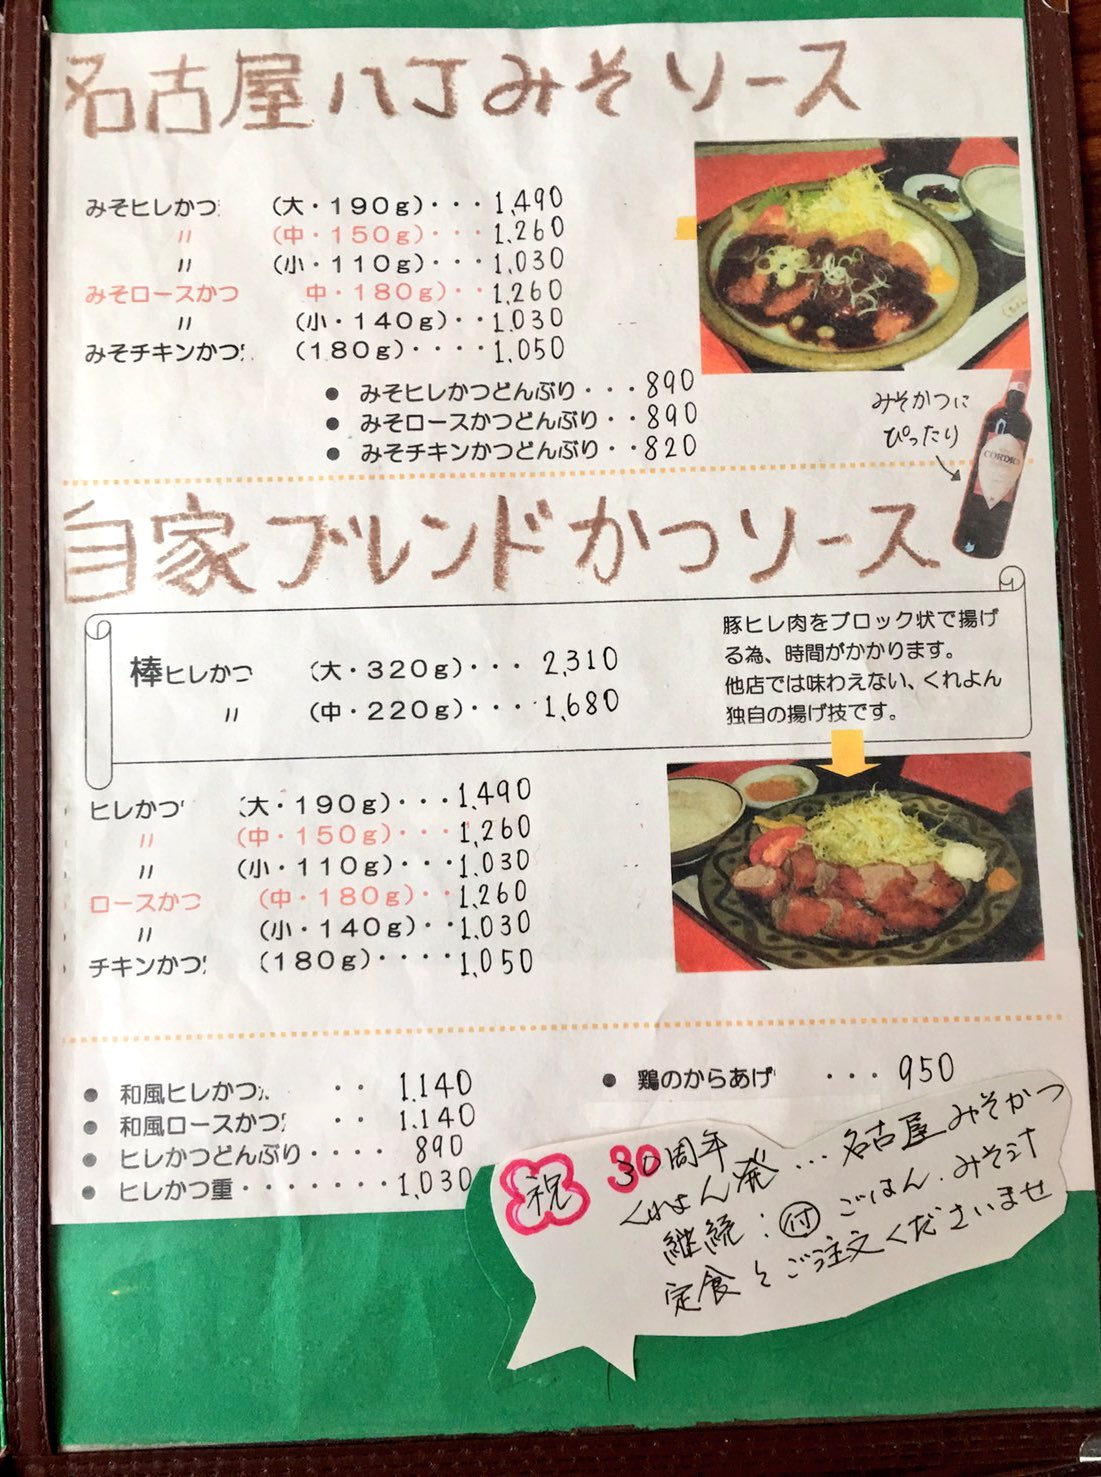 名古屋八丁みそソース
みそヒレかつ (大・190g)・・・1,490
〃 (中・150g)・・・1,260
〃 (小・110g)・・・1,030
みそロースかつ 中・180g)・・1,260
〃 (小・140g)・・1,030
みそチキンかつ (180g)・・・・1,050
● みそヒレかつどんぶり・・・890
● みそロースかつどんぶり・・890
● みそチキンかつどんぶり・・820
みそかつに
ぴったり
CORDIC
自家ブレンドかつソース
棒ヒレかつ (大・320g)・・・2,310
〃 (中・220g)・・・1,680
豚ヒレ肉をブロック状で揚げ
る為、時間がかかります。
他店では味わえない、くれよん
独自の揚げ技です。
ヒレかつ (大・190g)・・・1,490
〃 (中・150g)・・・1,260
〃 (小・110g)・・・1,030
ロースかつ (中・180g)・・1,260
〃 (小・140g)・・1,030
チキンかつ (180g)・・・・1,050
● 和風ヒレかつ ・・ 1,140
● 和風ロースかつ ・・ 1,140
● ヒレかつどんぶり・・・・ 890
● ヒレかつ重・・・・・・・1,030
● 鶏のからあげ ・・・950
祝 30周年
くれよん発…名古屋みそかつ
継続：付 ごはん.みそ汁
定食とご注文くださいませ